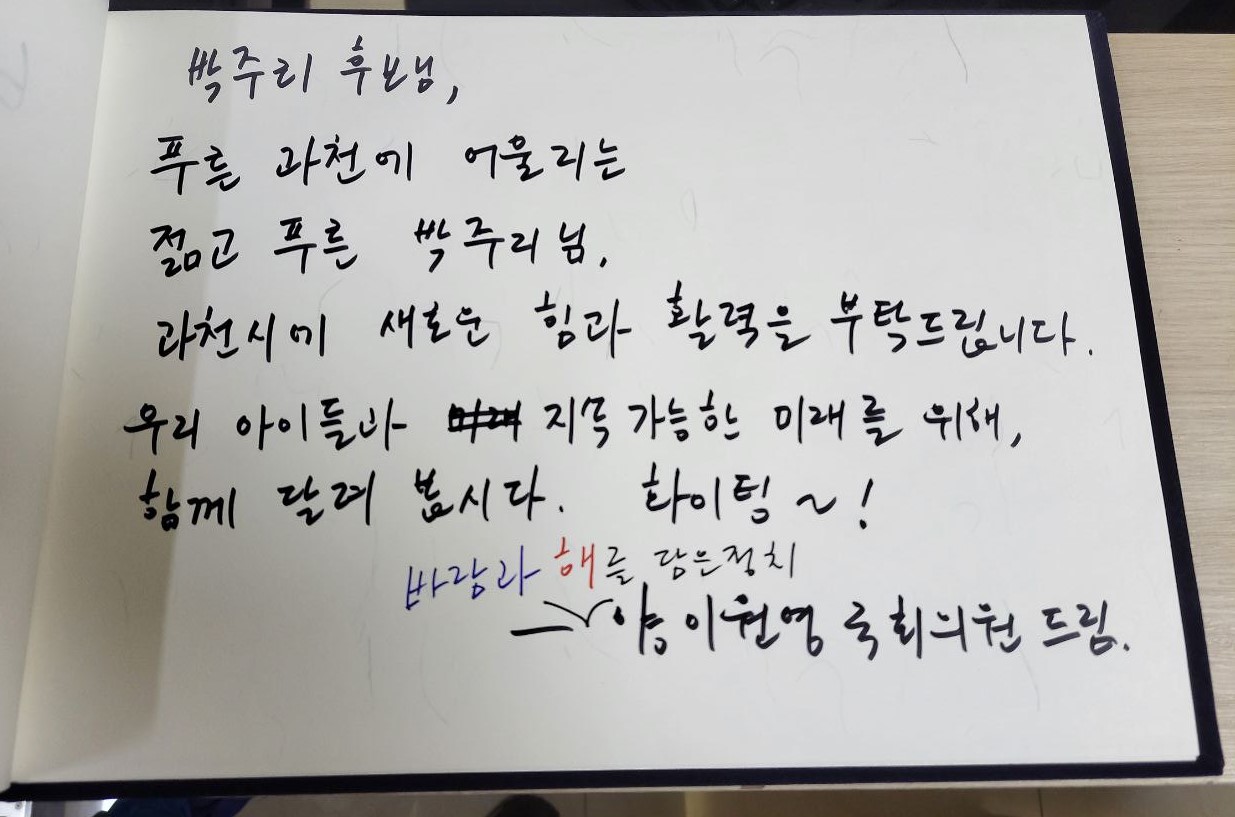 박주리 후보님,
푸른 과천에 어울리는
젊고 푸른 박주리님,
과천시에 새로운 힘과 활력을 부탁드립니다.
우리 아이들과 지속가능한 미래를 위해,
함께 달려 봅시다. 화이팅~!
바람과 해를 담은정치
양이원영 국회의원 드림.